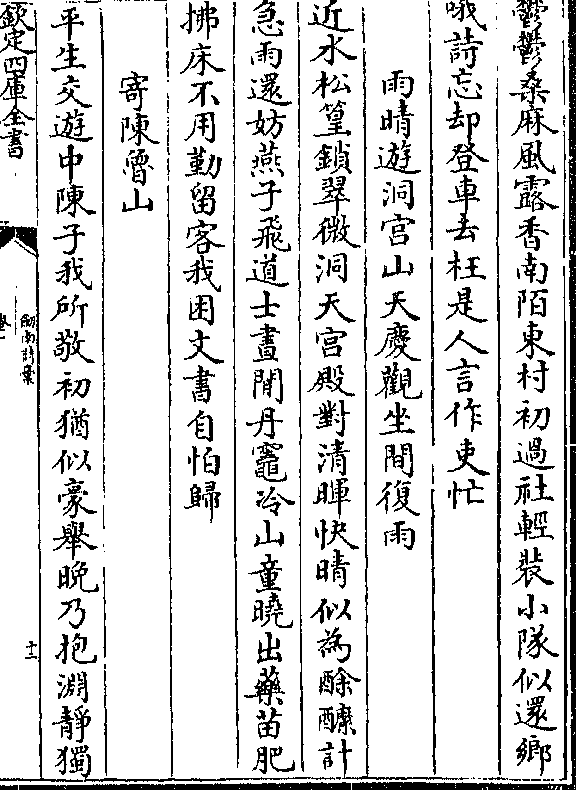 鬱鬱桑麻風露香南陌東村初過社輕裝小隊似還鄉
哦詩忘却登車去枉是人言作吏忙
雨晴遊洞宮山天慶觀坐間復雨
近水松篁鎖翠微洞天宮殿對清暉快晴似為酴醿計
急雨還妨燕子飛道士晝閒丹竈冷山童曉出藥苗肥
拂床不用勤留客我困文書自怕歸
寄陳魯山
平生交遊中陳子我所敬初猶似豪舉晚乃抱淵靜獨
欽定四庫全書
劍南詩藁
卷一
十二